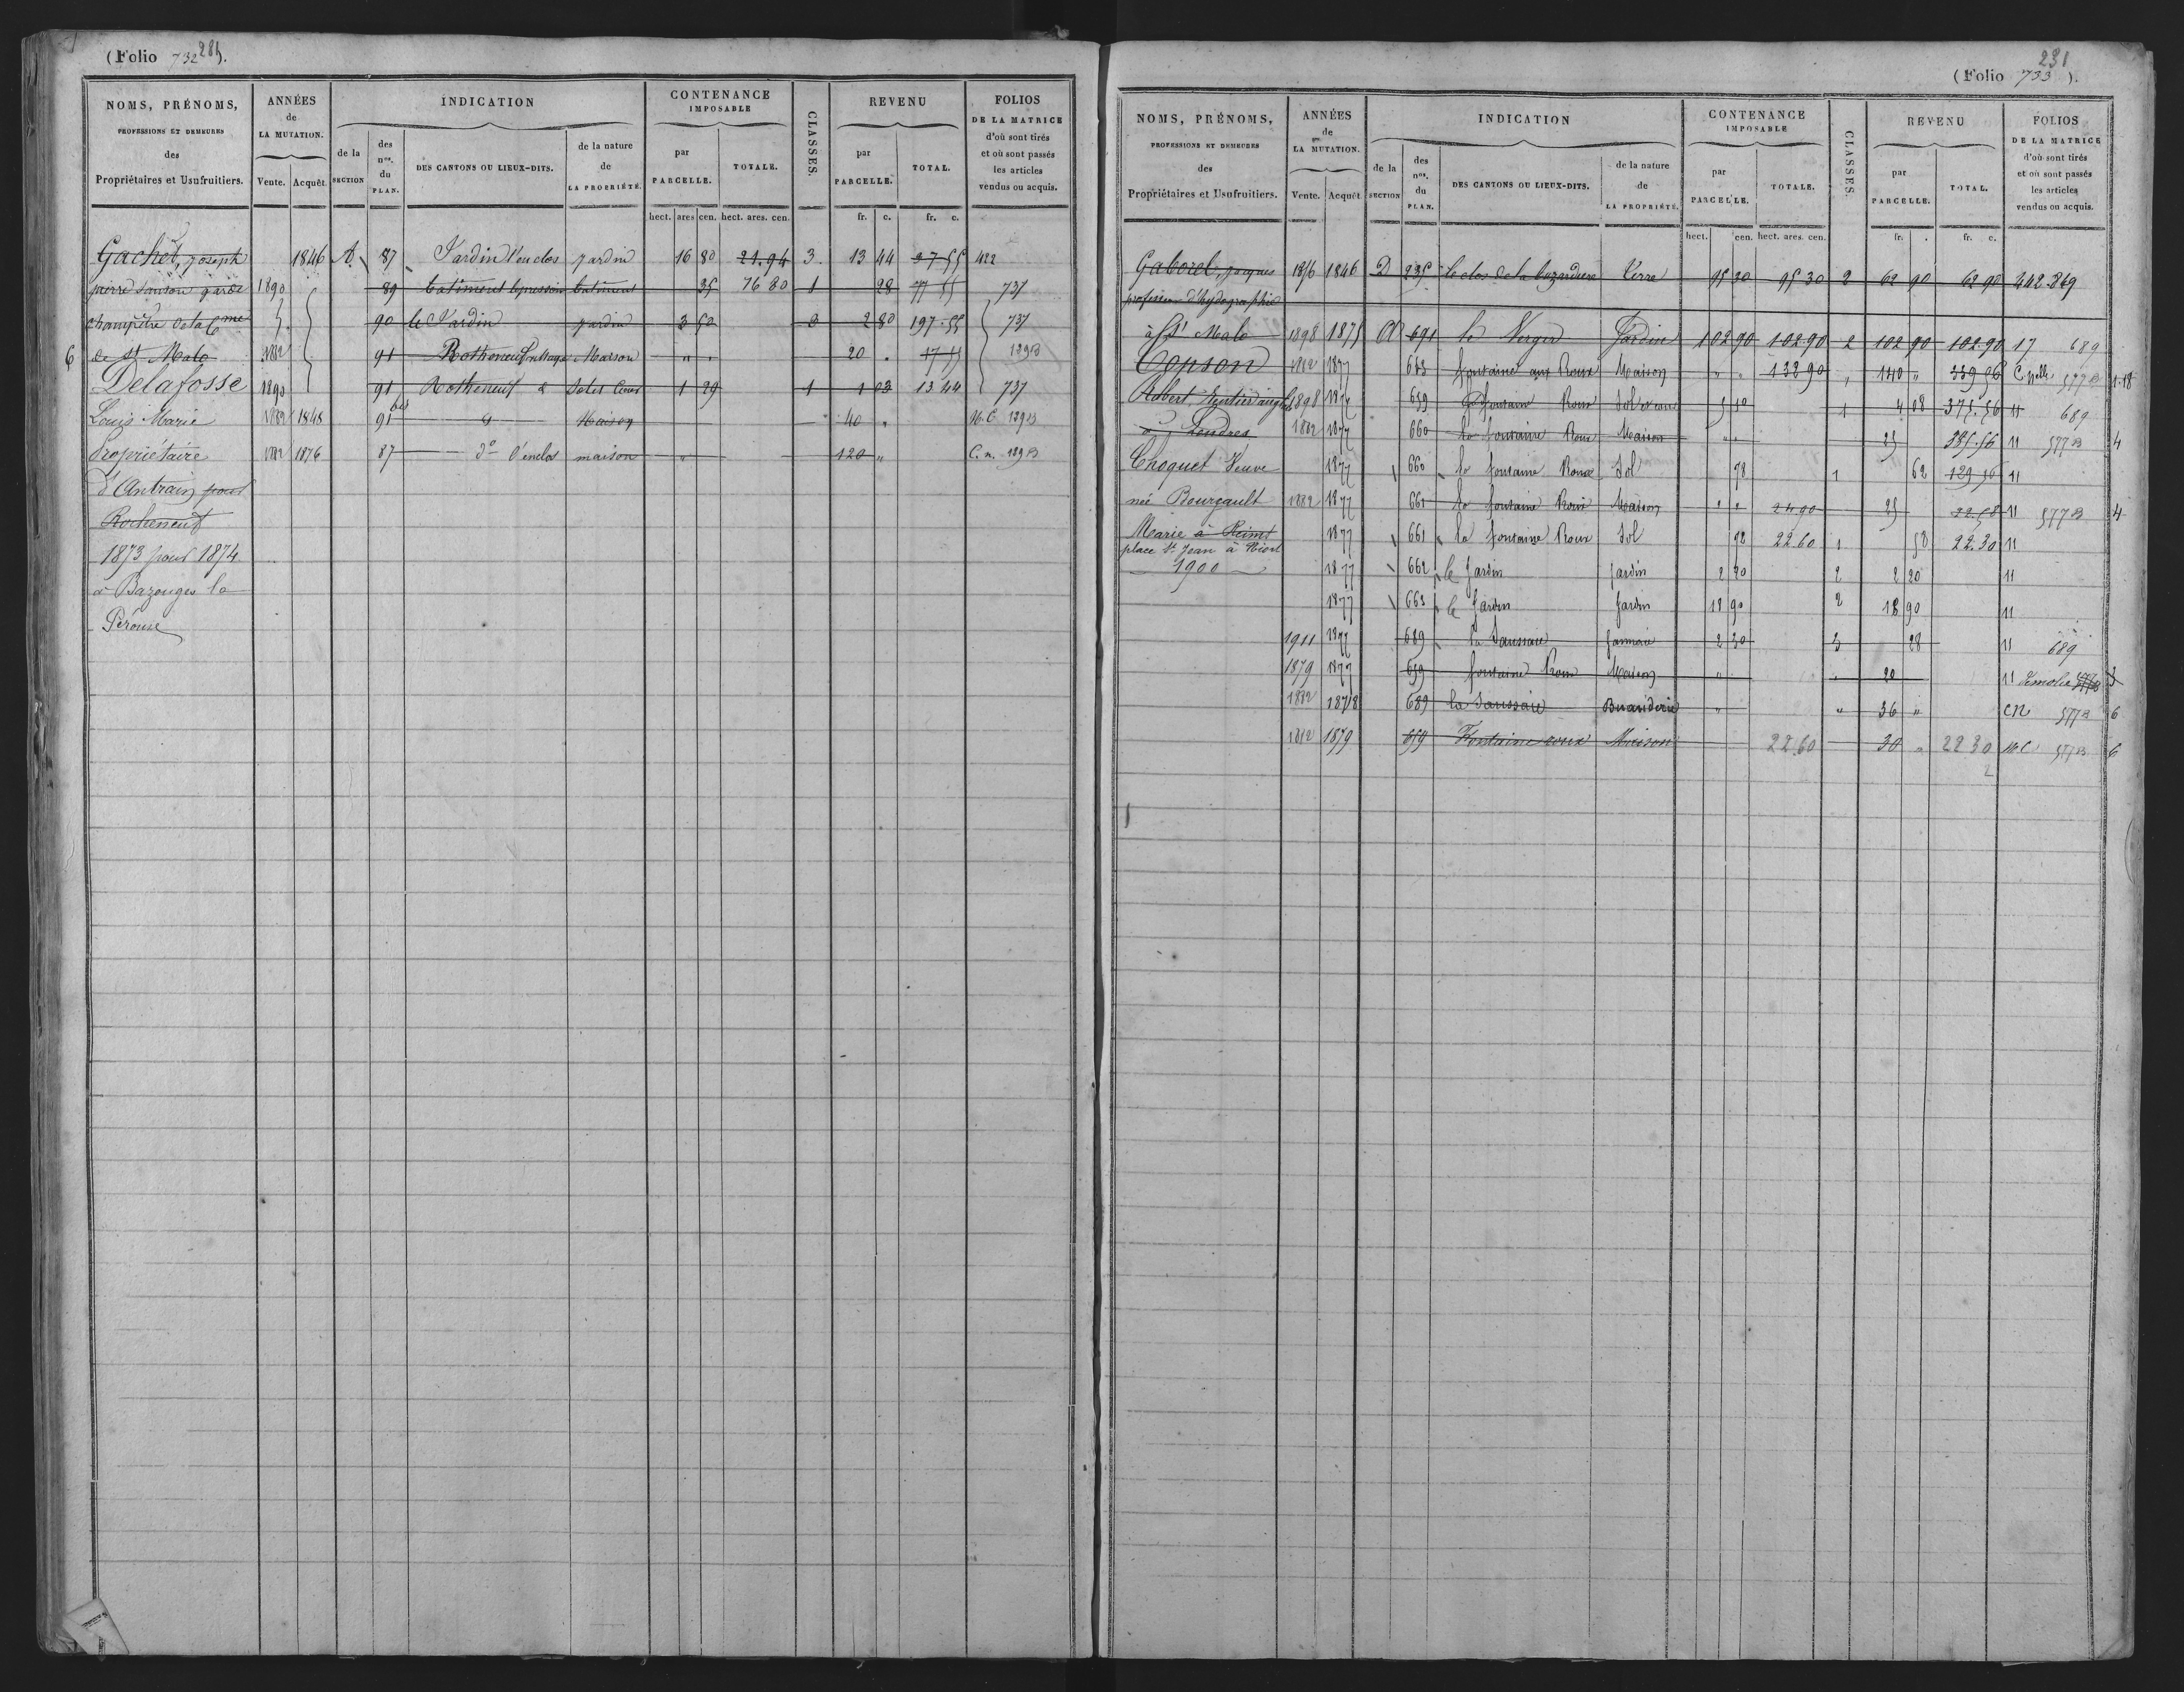 (Folio 732 281).
NOMS, PRÉNOMS,
PROFESSIONS ET DEMEURES
des
Propriétaires et Usufruitiers.
ANNÉES
de
LA MUTATION.
Vente. Acquêt.
INDICATION
de la
SECTION
des
nos.
du
PLAN.
DES CANTONS OU LIEUX-DITS.
de la nature
de
LA PROPRIÉTÉ.
CONTENANCE
IMPOSABLE
par
PARCELLE.
TOTALE.
hect. ares cen. hect. ares. cen.
CLASSES.
REVENU
par
PARCELLE.
TOTAL.
fr. c. fr. c.
FOLIOS
DE LA MATRICE
d'où sont tirés
et où sont passés
les articles
vendus ou acquis.
Gachet, joseph 1846 A. 87 Jardin l'enclos jardin 16 80 21.94 3. 13 44 27 55 422
pierre garde 1890 89 batiment batiment 35 76 80 1 28 77 55 737
champêtre de la Cme 90 le Jardin jardin 3 50 3 2 80 197.55 737
6 de St. Malo 1882 91 Rotheneuf Maison " " 20 . 17 55 129B
Delafosse 1890 91 Rotheneuf Sol et Cour 1 29 1 1 03 13 44 737
Louis Marie 1882 1848 91 bis Maison 40 " N.C. 129B
Propriétaire 1882 1876 87 do l'enclos maison " 120 " C.n. 129B
d'Antrain pour
Rotheneuf
1873 pour 1874.
à Bazouges la
Pérouse
231
(Folio 733 ).
NOMS, PRÉNOMS,
PROFESSIONS ET DEMEURES
des
Propriétaires et Usufruitiers.
ANNÉES
de
LA MUTATION.
Vente. Acquêt
INDICATION
de la
SECTION
des
nos.
du
PLAN.
DES CANTONS OU LIEUX-DITS.
de la nature
de
LA PROPRIÉTÉ.
CONTENANCE
IMPOSABLE
par
PARCELLE.
TOTALE.
hect. cen. hect. ares. cen.
CLASSES.
REVENU
par
PARCELLE.
TOTAL.
fr. . fr. c.
FOLIOS
DE LA MATRICE
d'où sont tirés
et où sont passés
les articles
vendus ou acquis.
Gaborel, jacques 1846 D 235 le clos de la buzardiere Terre 95 30 95 30 2 62 90 62 90 342 869
professeur d'hydrographie
à St Malo 1898 1875 A 691 le Verger Jardin 102 90 102 90 2 102 90 102.90 17 689
Copson 1882 1877 fontaine aux Roux Maison " " 132 90 " 140 " 339 56 577B 1-18
Robert Rentier anglais 1898 1877 659 Roux Sol et cour 5 10 1 4 08 375.56 11 689
à Londres 1882 1877 660 la fontaine Roux Maison " " 25 385.56 11 577B 4
Choquet Veuve 1877 660 la fontaine Roux Sol 78 1 62 129 56 11
née Bourgault 1882 1877 661 la fontaine Roux Maison " " 24 90 25 22.58 11 577B 4
Marie à Reims 1877 661 la fontaine Roux Sol 72 22.60 1 58 22.30 11
place St. Jean à Niort 1877 662 le Jardin Jardin 2 20 2 2 20 11
1900
1877 663 le Jardin Jardin 18 90 2 18 90 11
1911 1877 689 la Saussaie 2 30 3 28 11 689
1879 1877 659 fontaine Roux Maison " " 20 11 Démolie
1882 1878 689 la Saussaie Buanderie " " 36 " CN 577B 6
1882 1879 659 Fontaine roux Maison 22.60 30 " 22 30 N.C 577B 6
2